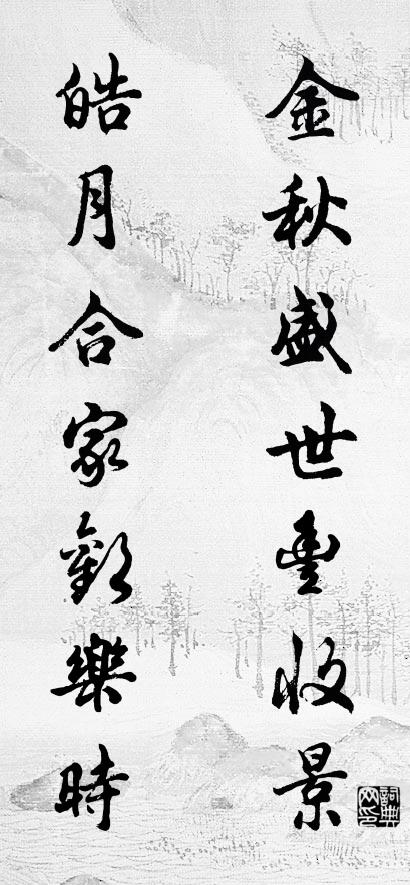 金秋盛世豐收景
皓月合家歡樂時
詞典网印